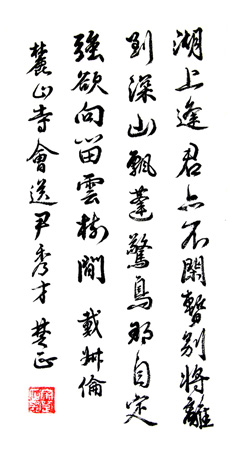 湖上逢君亦不閑暫別將離
到深山飄蓬驚鳥那自定
強欲向留雲樹間 戴叔倫
麓山寺會送尹秀才